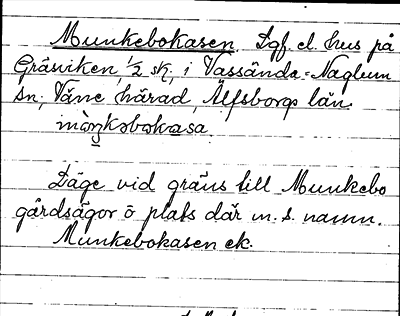 Munkebokasen, Lgf. el. hus på
Gräsviken, 1/2 sk, i Vassända-Naglum
sn, Väne härad, Älfsborgs län.
Läge vid gräns till Munkebo
gårdsägor ö plats där m. s. namn.
Munkebokasen ek.